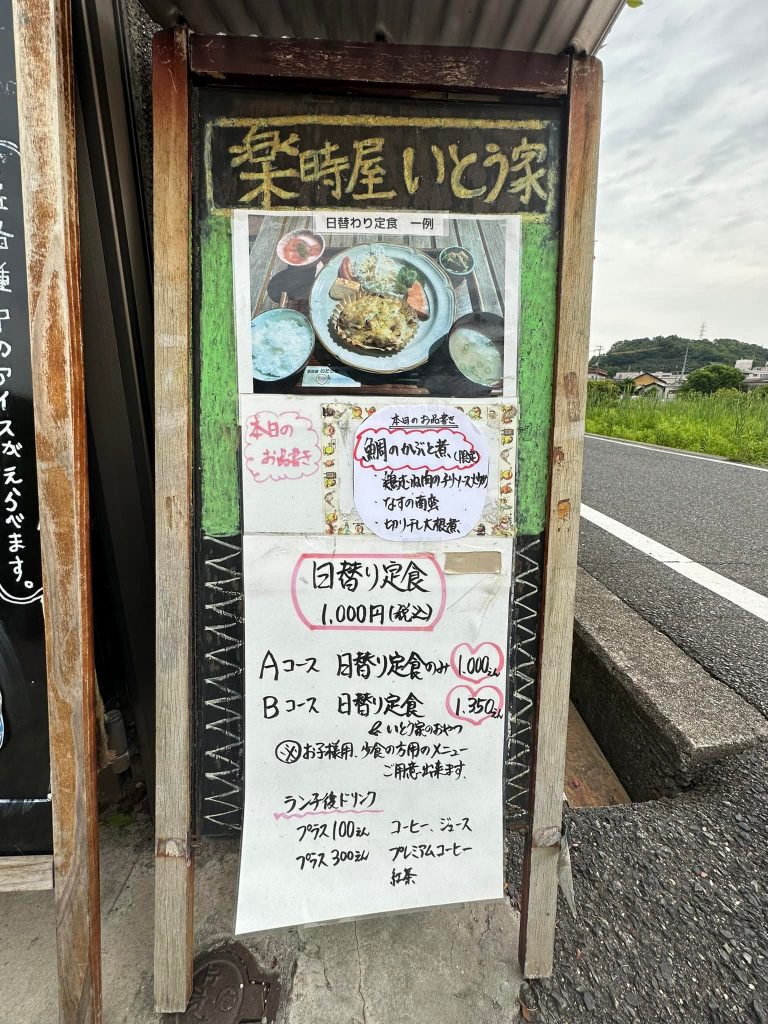 楽時屋 いとう家
日替わり定食 一例
本日の
お品書き
本日のお品書き
鯛のかぶと煮(限定)
・鶏むね肉のチリソース炒め
なすの南蛮
・切り干し大根煮
日替り定食
1,000円(税込)
Aコース 日替り定食のみ 1,000えん
Bコース 日替り定食 1,350えん
& いとう家のおやつ
※お子様用、少食の方用のメニュー
ご用意出来ます。
ランチ後ドリンク
プラス100えん コーヒー、ジュース
プラス300えん プレミアムコーヒー
紅茶
種中のアイスがえらべます。